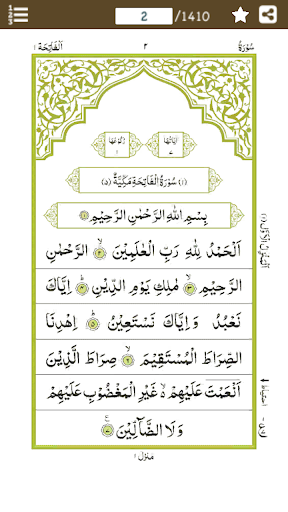 2 /1410
سُوْرَةُ ٢ اَلْفَاتِحَة ١
اٰيَاتُهَا ٧ رُكُوْعُهَا ١
(١) سُوْرَةُ الْفَاتِحَةِ مَكِّيَّةٌ (٥)
بِسْمِ اللّٰهِ الرَّحْمٰنِ الرَّحِيْمِ ۝١
اَلْحَمْدُ لِلّٰهِ رَبِّ الْعٰلَمِيْنَ ۝٢ۙ الرَّحْمٰنِ
الرَّحِيْمِ ۝٣ۙ مٰلِكِ يَوْمِ الدِّيْنِ ۝٤ اِيَّاكَ
نَعْبُدُ وَاِيَّاكَ نَسْتَعِيْنُ ۝٥ اِهْدِنَا
الصِّرَاطَ الْمُسْتَقِيْمَ ۝٦ۙ صِرَاطَ الَّذِيْنَ
اَنْعَمْتَ عَلَيْهِمْ ۙ غَيْرِ الْمَغْضُوْبِ عَلَيْهِمْ
وَلَا الضَّآلِّيْنَ ۝٧
منزل ١